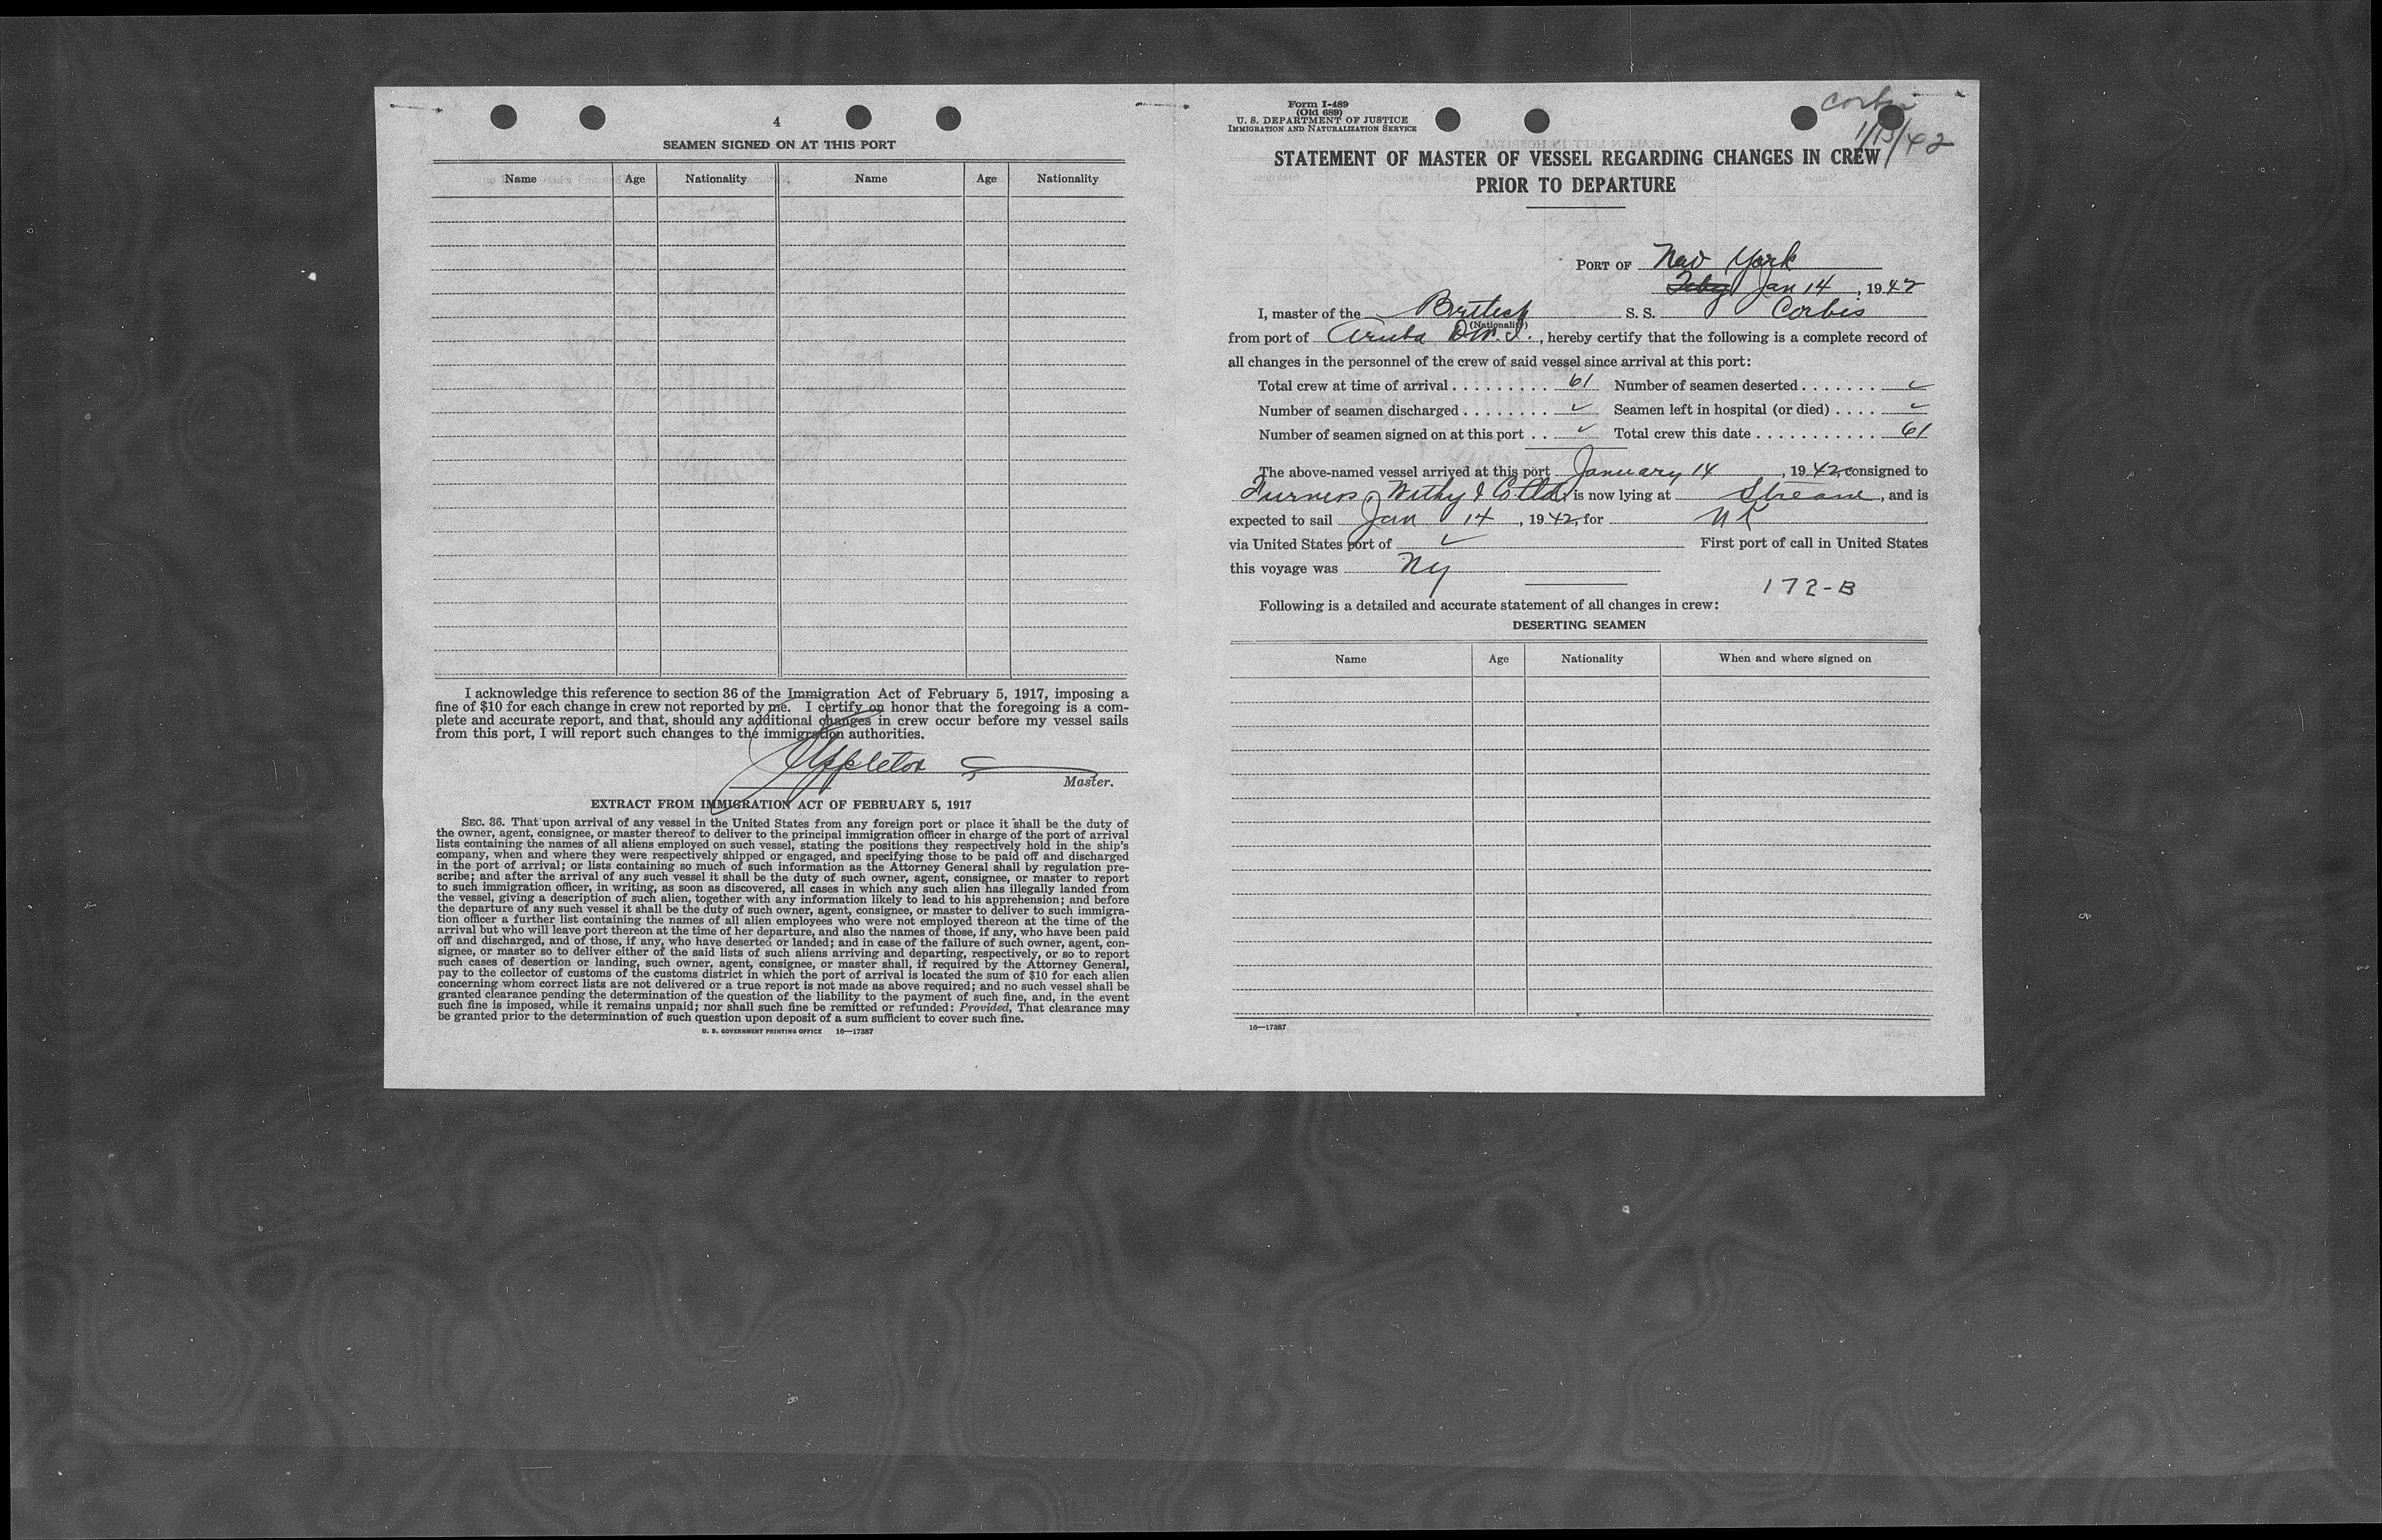 4
SEAMEN SIGNED ON AT THIS PORT
Name Age Nationality Name Age Nationality
I acknowledge this reference to section 36 of the Immigration Act of February 5, 1917, imposing a
fine of $10 for each change in crew not reported by me. I certify on honor that the foregoing is a com-
plete and accurate report, and that, should any additional changes in crew occur before my vessel sails
from this port, I will report such changes to the immigration authorities.
Appleton
Master.
EXTRACT FROM IMMIGRATION ACT OF FEBRUARY 5, 1917
SEC. 36. That upon arrival of any vessel in the United States from any foreign port or place it shall be the duty of
the owner, agent, consignee, or master thereof to deliver to the principal immigration officer in charge of the port of arrival
lists containing the names of all aliens employed on such vessel, stating the positions they respectively hold in the ship's
company, when and where they were respectively shipped or engaged, and specifying those to be paid off and discharged
in the port of arrival; or lists containing so much of such information as the Attorney General shall by regulation pre-
scribe; and after the arrival of any such vessel it shall be the duty of such owner, agent, consignee, or master to report
to such immigration officer, in writing, as soon as discovered, all cases in which any such alien has illegally landed from
the vessel, giving a description of such alien, together with any information likely to lead to his apprehension; and before
the departure of any such vessel it shall be the duty of such owner, agent, consignee, or master to deliver to such immigra-
tion officer a further list containing the names of all alien employees who were not employed thereon at the time of the
arrival but who will leave port thereon at the time of her departure, and also the names of those, if any, who have been paid
off and discharged, and of those, if any, who have deserted or landed; and in case of the failure of such owner, agent, con-
signee, or master so to deliver either of the said lists of such aliens arriving and departing, respectively, or so to report
such cases of desertion or landing, such owner, agent, consignee, or master shall, if required by the Attorney General,
pay to the collector of customs of the customs district in which the port of arrival is located the sum of $10 for each alien
concerning whom correct lists are not delivered or a true report is not made as above required; and no such vessel shall be
granted clearance pending the determination of the question of the liability to the payment of such fine, and, in the event
such fine is imposed, while it remains unpaid; nor shall such fine be remitted or refunded: Provided, That clearance may
be granted prior to the determination of such question upon deposit of a sum sufficient to cover such fine.
U. S. GOVERNMENT PRINTING OFFICE 16—17387
Form I-489
(Old 689)
U. S. DEPARTMENT OF JUSTICE
IMMIGRATION AND NATURALIZATION SERVICE
1/13/42
STATEMENT OF MASTER OF VESSEL REGARDING CHANGES IN CREW
PRIOR TO DEPARTURE
PORT OF New York
Jan 14, 1942
I, master of the British S. S. Corbis
(Nationality)
from port of Aruba D.W.I., hereby certify that the following is a complete record of
all changes in the personnel of the crew of said vessel since arrival at this port:
Total crew at time of arrival 61 Number of seamen deserted ✓
Number of seamen discharged ✓ Seamen left in hospital (or died) ✓
Number of seamen signed on at this port ✓ Total crew this date 61
The above-named vessel arrived at this port January 14, 1942, consigned to
Furness, Withy & Co Ltd; is now lying at Stream, and is
expected to sail Jan 14, 1942, for UK
via United States port of ✓ First port of call in United States
this voyage was NY
172-B
Following is a detailed and accurate statement of all changes in crew:
DESERTING SEAMEN
Name Age Nationality When and where signed on
16—17387